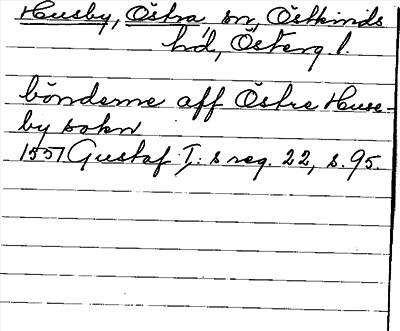 Husby, Östra, sn, Östkinds
hd, Österg. l.
bönderne aff Östre Huse-
by sokn
1557 Gustaf I:s reg. 22, s. 95.